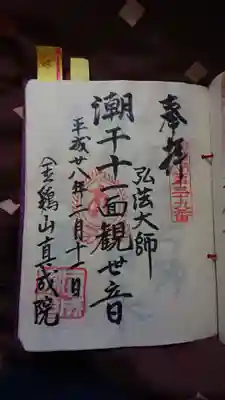 奉拝
弘法大師
潮干十一面観世音
平成廿八年一月十一日
金鶏山真成院